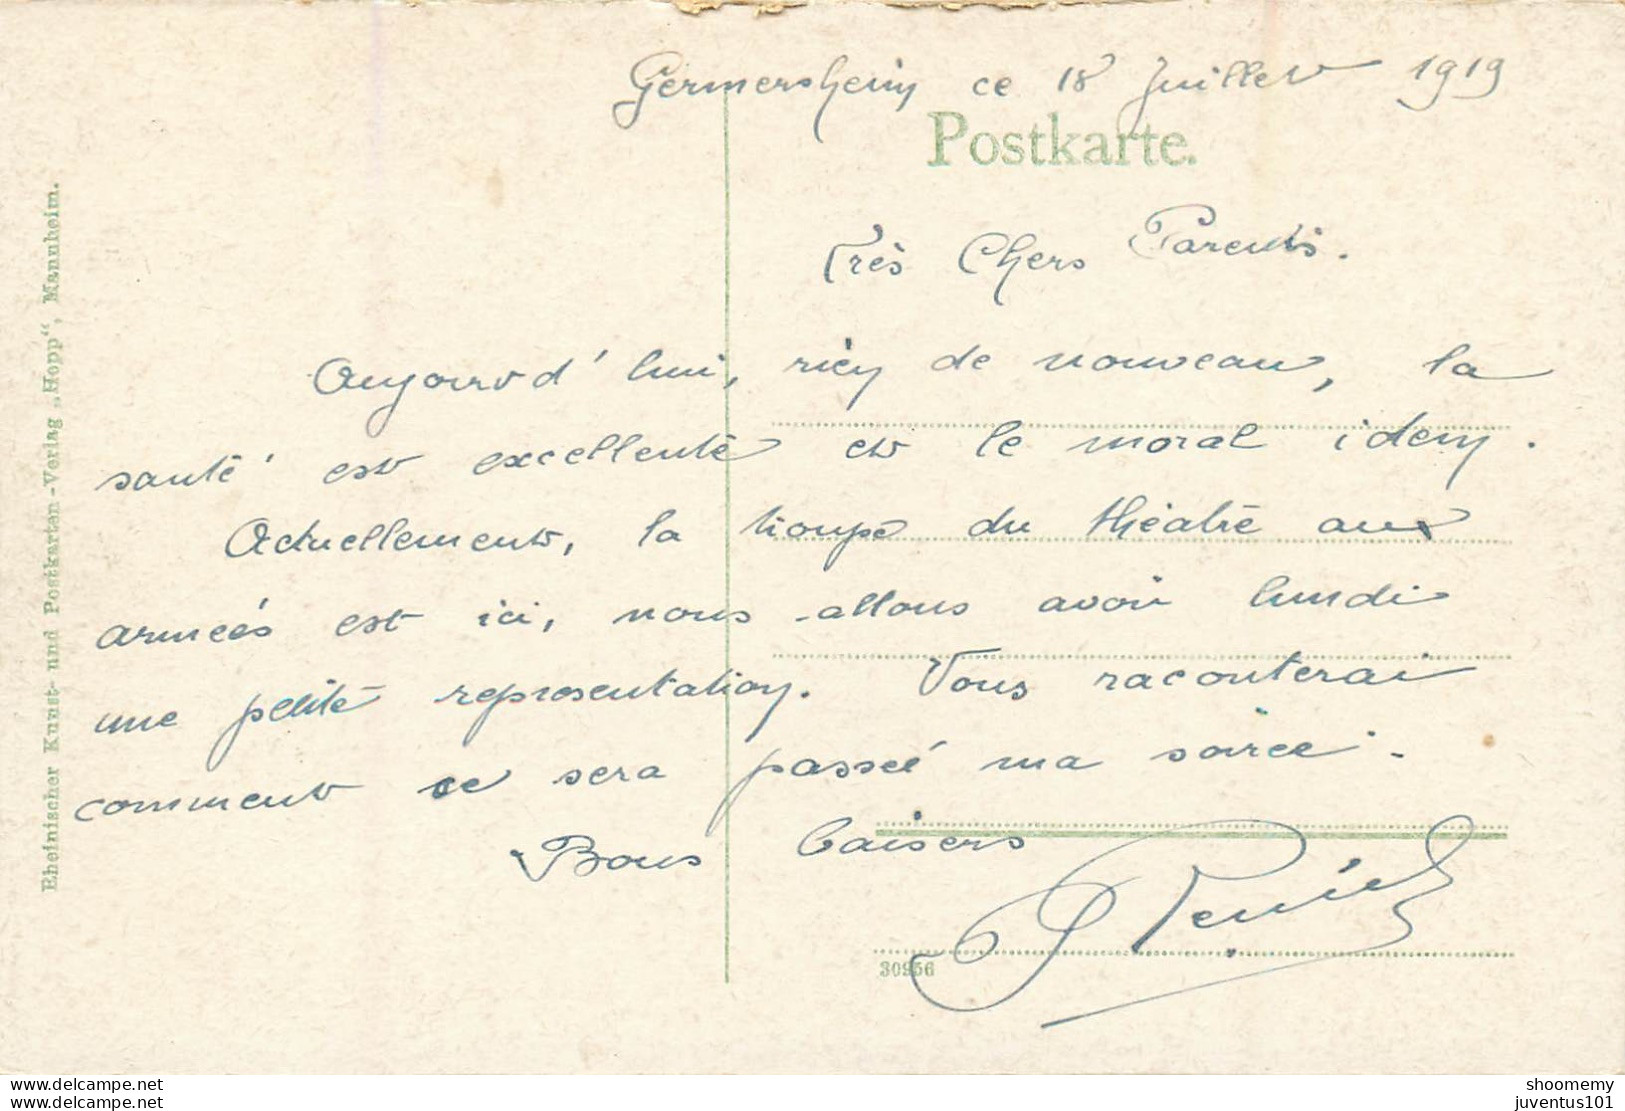 Germersheim ce 18 Juillet 1919
Postkarte.
Très Chers Parents.
Aujourd'hui, rien de nouveau, la
santé est excellente et le moral idem.
Actuellement, la troupe du théatre aux
armées est ici, nous allons avoir lundi
une petite representation. Vous raconterai
comment ce sera passée ma soirée.
Bons baisers
30956
Rheinischer Kunst- und Postkarten-Verlag „Hopp“, Mannheim.
www.delcampe.net
www.delcampe.net
shoomemy
juventus101